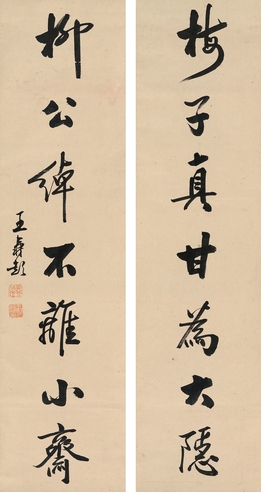 梅子真甘為大隱
柳公綽不離小齋
王壽彭